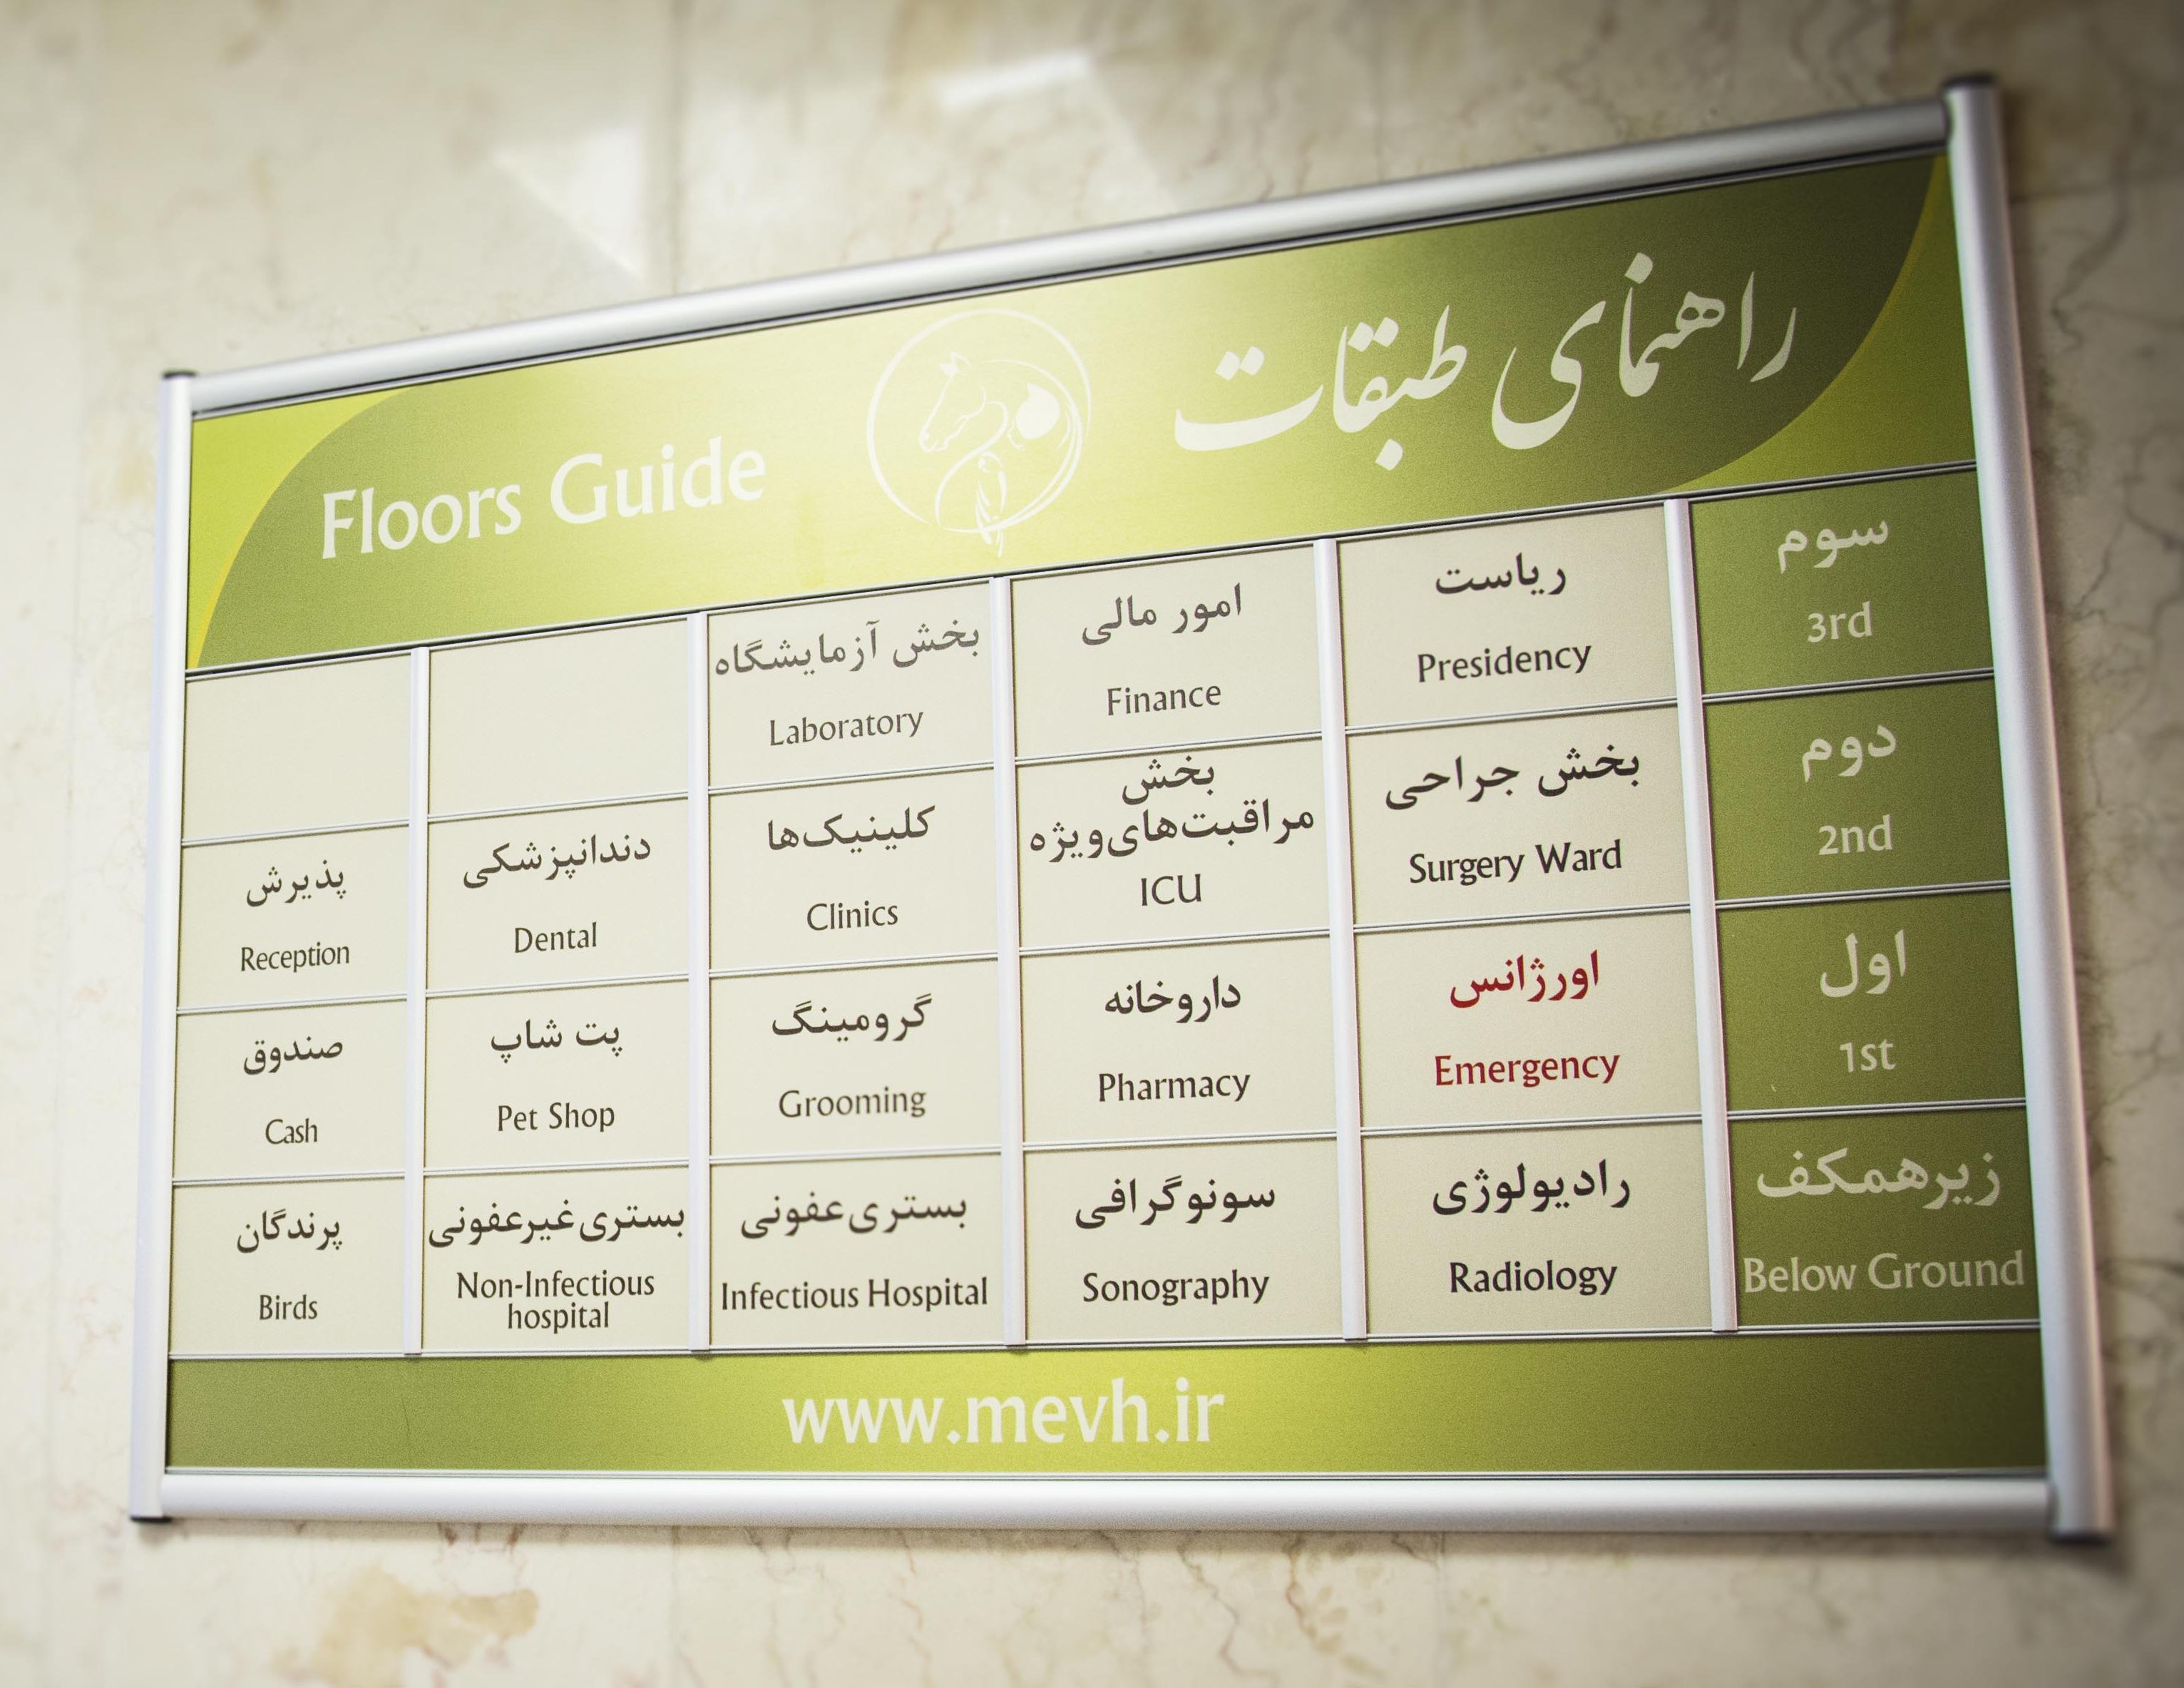 راهنمای طبقات
Floors Guide
سوم
3rd
ریاست
Presidency
امور مالی
Finance
بخش آزمایشگاه
Laboratory
دوم
2nd
بخش جراحی
Surgery Ward
بخش
مراقبت‌های‌ویژه
ICU
کلینیک‌ها
Clinics
دندانپزشکی
Dental
پذیرش
Reception
اول
1st
اورژانس
Emergency
داروخانه
Pharmacy
گرومینگ
Grooming
پت شاپ
Pet Shop
صندوق
Cash
زیرهمکف
Below Ground
رادیولوژی
Radiology
سونوگرافی
Sonography
بستری‌عفونی
Infectious Hospital
بستری‌غیرعفونی
Non-Infectious
hospital
پرندگان
Birds
www.mevh.ir